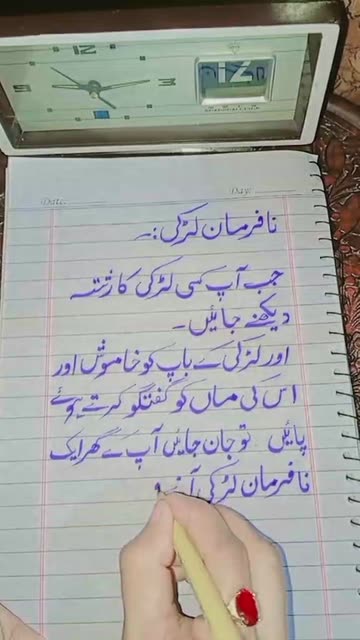 12
3
9
12
Date:
Day:
نافرمان لڑکی:۔
جب آپ کسی لڑکی کا رشتہ
دیکھنے جائیں۔
اور لڑکی کے باپ کو خاموش اور
اس کی ماں کو گفتگو کرتے ہوئے
پائیں تو جان جایں آپ کے گھر ایک
نافرمان لڑکی